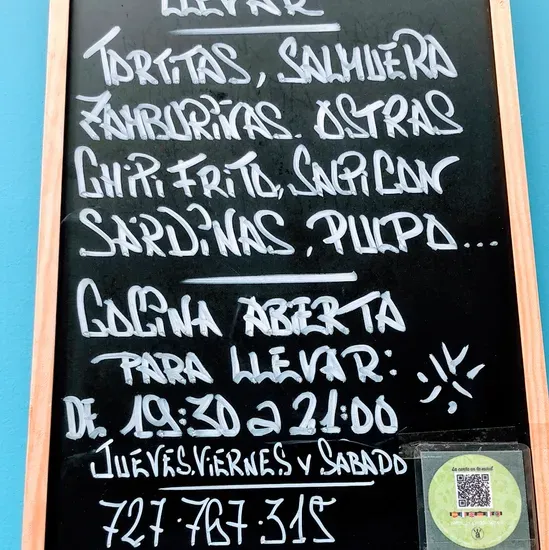 LLEVAR
TORTITAS, SALMUERA
ZAMBURIÑAS. OSTRAS
CHIPI FRITO, SALPICON
SARDINAS, PULPO...
COCINA ABIERTA
PARA LLEVAR:
DE 19:30 a 21:00
JUEVES, VIERNES Y SABADO
727·767·315
¡La carta en tu móvil!